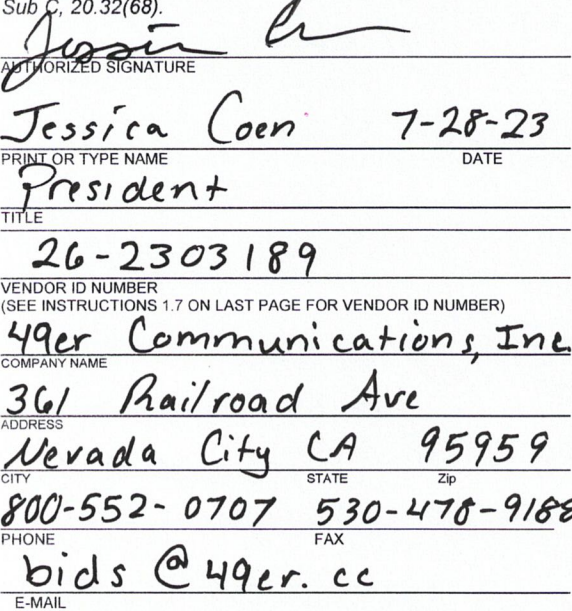 Sub C, 20.32(68).
Jessica
AUTHORIZED SIGNATURE
Jessica Coen 7-28-23
PRINT OR TYPE NAME DATE
President
TITLE
26-2303189
VENDOR ID NUMBER
(SEE INSTRUCTIONS 1.7 ON LAST PAGE FOR VENDOR ID NUMBER)
49er Communications, Inc.
COMPANY NAME
361 Railroad Ave
ADDRESS
Nevada City CA 95959
CITY STATE Zip
800-552-0707 530-478-9188
PHONE FAX
bids@49er.cc
E-MAIL